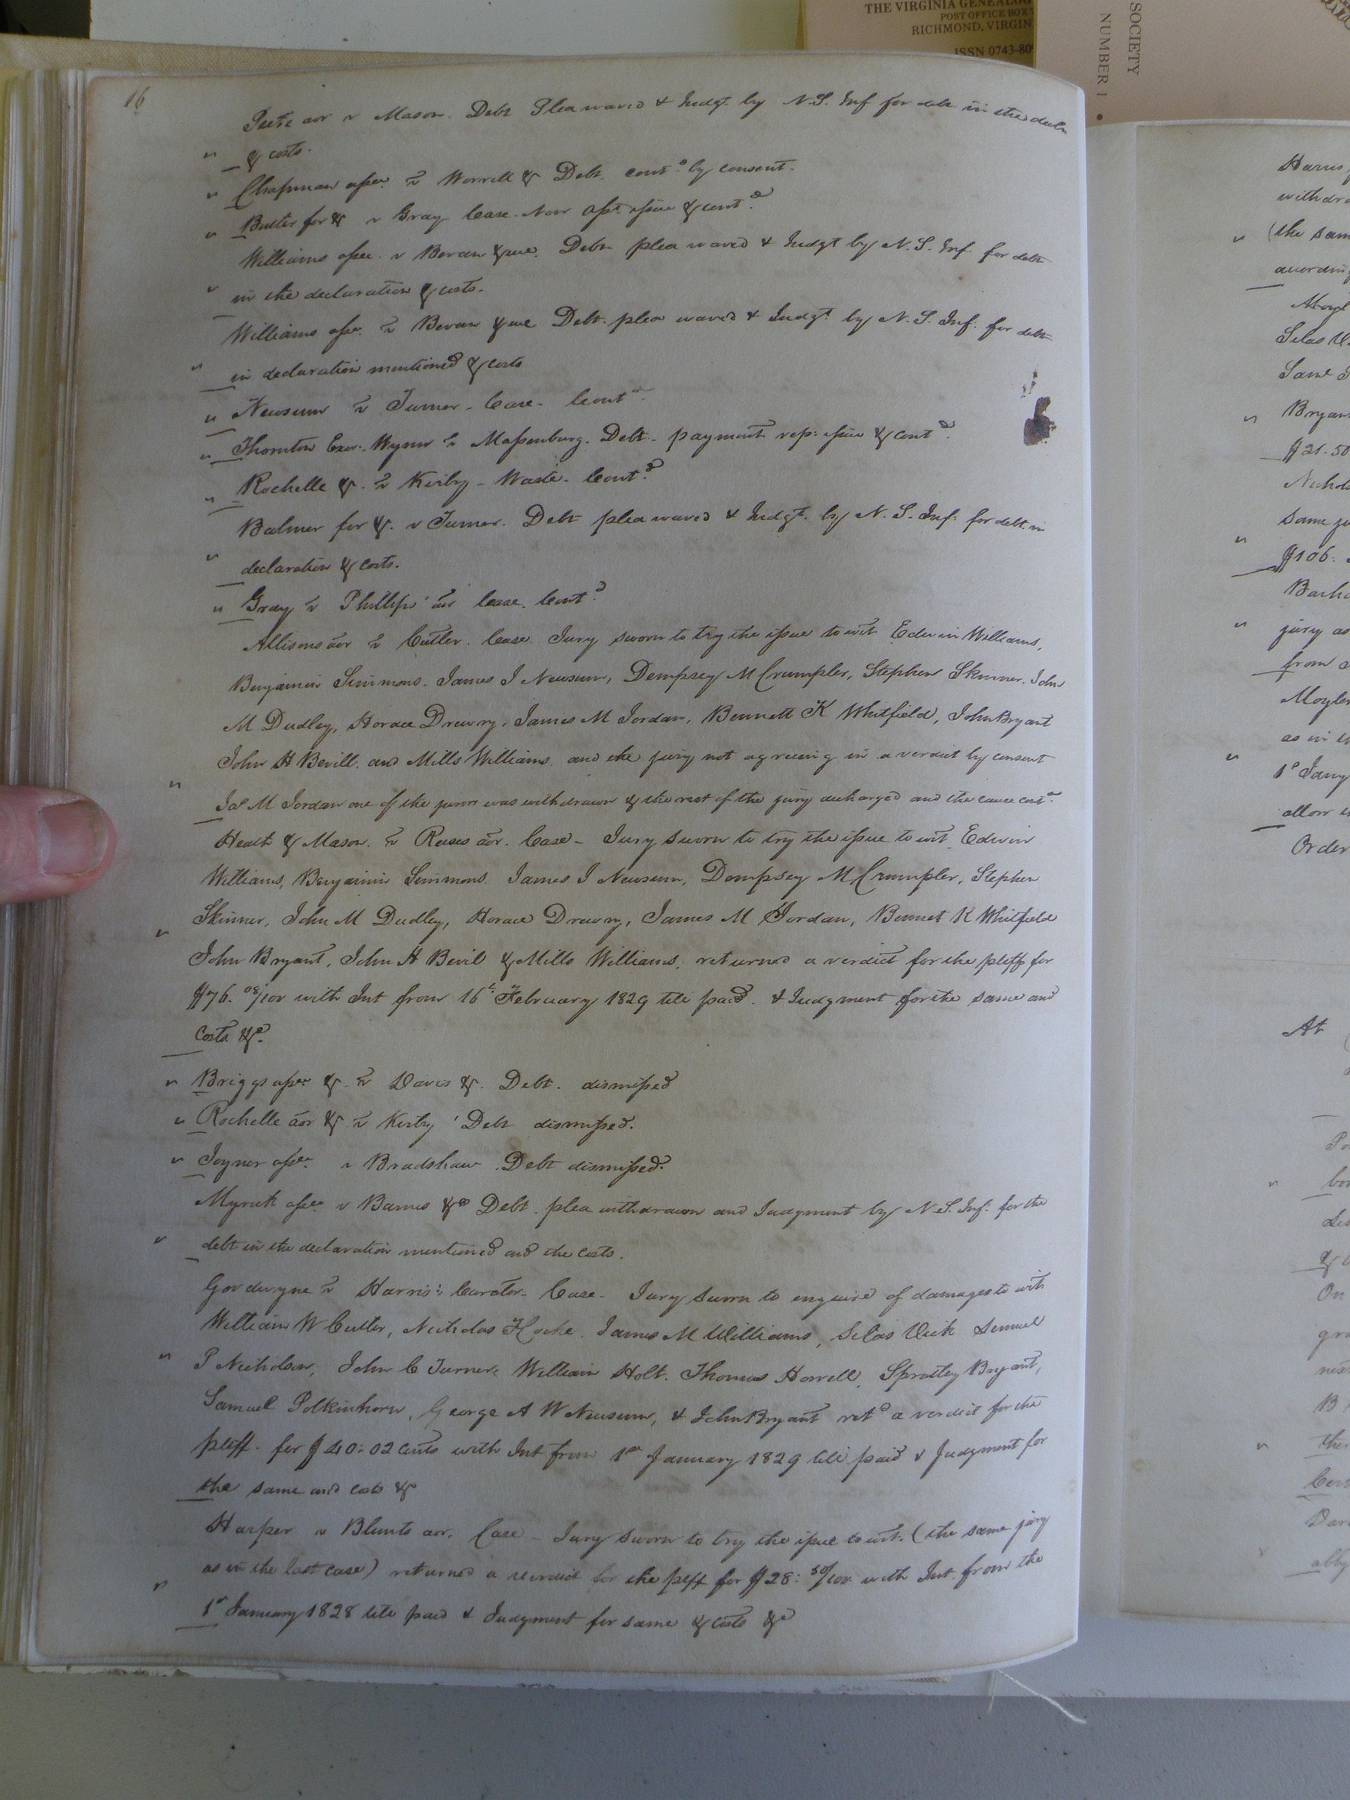 THE VIRGINIA GENEALOG
POST OFFICE BOX
RICHMOND, VIRGIN
ISSN 0743-80
SOCIETY
NUMBER 1
16
Peete aor v Mason. Debt Plea waved & Judgt. by N.S. Inf for debt in the decln
& costs.
Chapman assee. v Worrell & Debt. contd. by consent.
Butler for & v Gray Case. Non Asst. issue & contd.
Williams assee. v Bevan & Debt plea waved & Judgt by N.S. Inf. for debt
in the declaration & costs.
Williams asse. v Bevan & Debt. plea waved & Judgt. by N.S. Inf. for debt
in declaration mentioned & costs
Newsum v Turner. Case. Contd.
Thornton Exor. Wynne v Massenburg. Debt. payment rep. issue & contd.
Rochelle &. v Kirby - Waste. Contd.
Balmer for &. v Turner. Debt plea waved & Judgt. by N.S. Inf. for debt in
declaration & costs.
Gray v Phillips aor Case. Contd.
Allisons aor v Cutler. Case Jury sworn to try the issue to wit Edwin Williams,
Benjamin Simmons. James J Newsum, Dempsey M Crumpler, Stephen Skinner. John
M Dudley, Horace Drewry, James M Jordan, Bennett K Whitfield, John Bryant
John H Bevill. and Mills Williams. and the jury not agreeing in a verdict by consent
Jas M Jordan one of the jurors was withdrawn & the rest of the jury discharged and the cause contd.
Heath & Mason. v Reeses aor. Case - Jury sworn to try the issue to wit. Edwin
Williams, Benjamin Simmons. James J Newsum, Dempsey M Crumpler, Stephen
Skinner, John M Dudley, Horace Drewry, James M Jordan, Bennet K Whitfield
John Bryant, John H Bevil & Mills Williams. returned a verdict for the pltff for
$76. 08/100 with Int from 16th February 1829 till paid. & Judgment for the same and
costs &c.
Briggs assee &. v Davis &. Debt. dismissed
Rochelle aor & v Kirby Debt dismissed.
Joyner assee. v Bradshaw. Debt dismissed.
Myrick assee v Barnes &c Debt. plea withdrawn and Judgment by N.S. Inf. for the
debt in the declaration mentioned and the costs.
Goodwyne v Harris's Curator. Case. Jury sworn to enquire of damages to wit
William W Cutler, Nicholas James M Williams, Silas Vick Samuel
P Nicholson, John C Turner, William Holt. Thomas Howell, Spratley Bryant,
Samuel Polkinhorn, George A W Newsum, & John Bryant retd a verdict for the
pltff. for $40:02 cents with Int from 1st January 1829 till paid & Judgment for
the same and costs &c
Harper v Blunts aor. Case - Jury sworn to try the issue to wit. (the same jury
as in the last case) returned a verdict for the pltff for $28: 50/100 with Int. from the
1st January 1828 till paid & Judgment for same & costs &c
Harris,
withdra
(the sam
according
Silas V.
Same J
Bryan
$21.50
Nichol
Same ju
$106.
jury as
from
as in
1st Jany
allow
Order
At